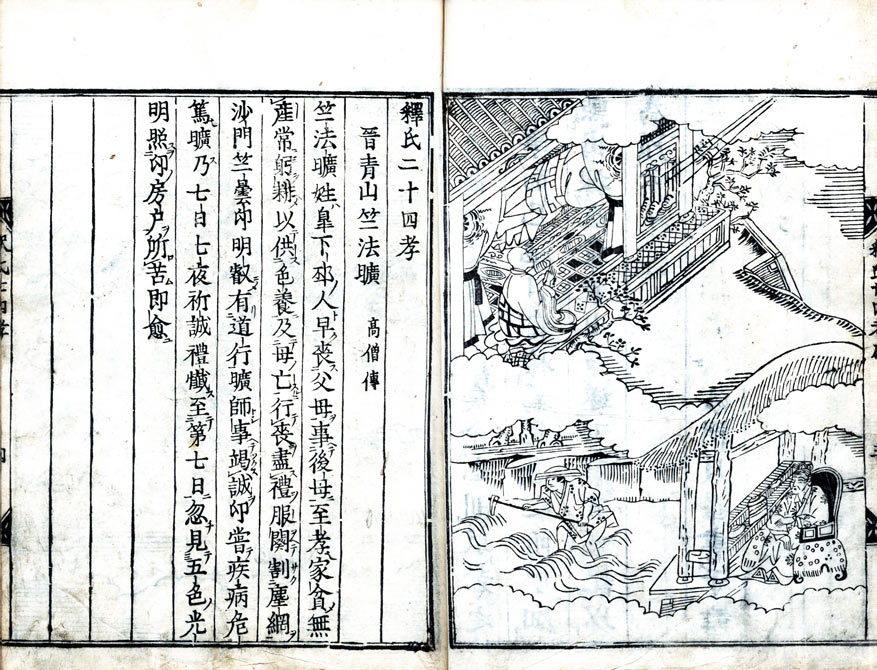 釋氏二十四孝
晉青山竺法曠 高僧傳
竺法曠姓皐下邳人早喪父母事後母至孝家貧無
產常躬耕以供色養及母亡行喪盡禮服闋割塵網
沙門竺曇印明叡有道行曠師事竭誠印嘗疾病危
篤曠乃七日七夜祈誠禮懺至第七日忽見五色光
明照印房戶所苦即愈